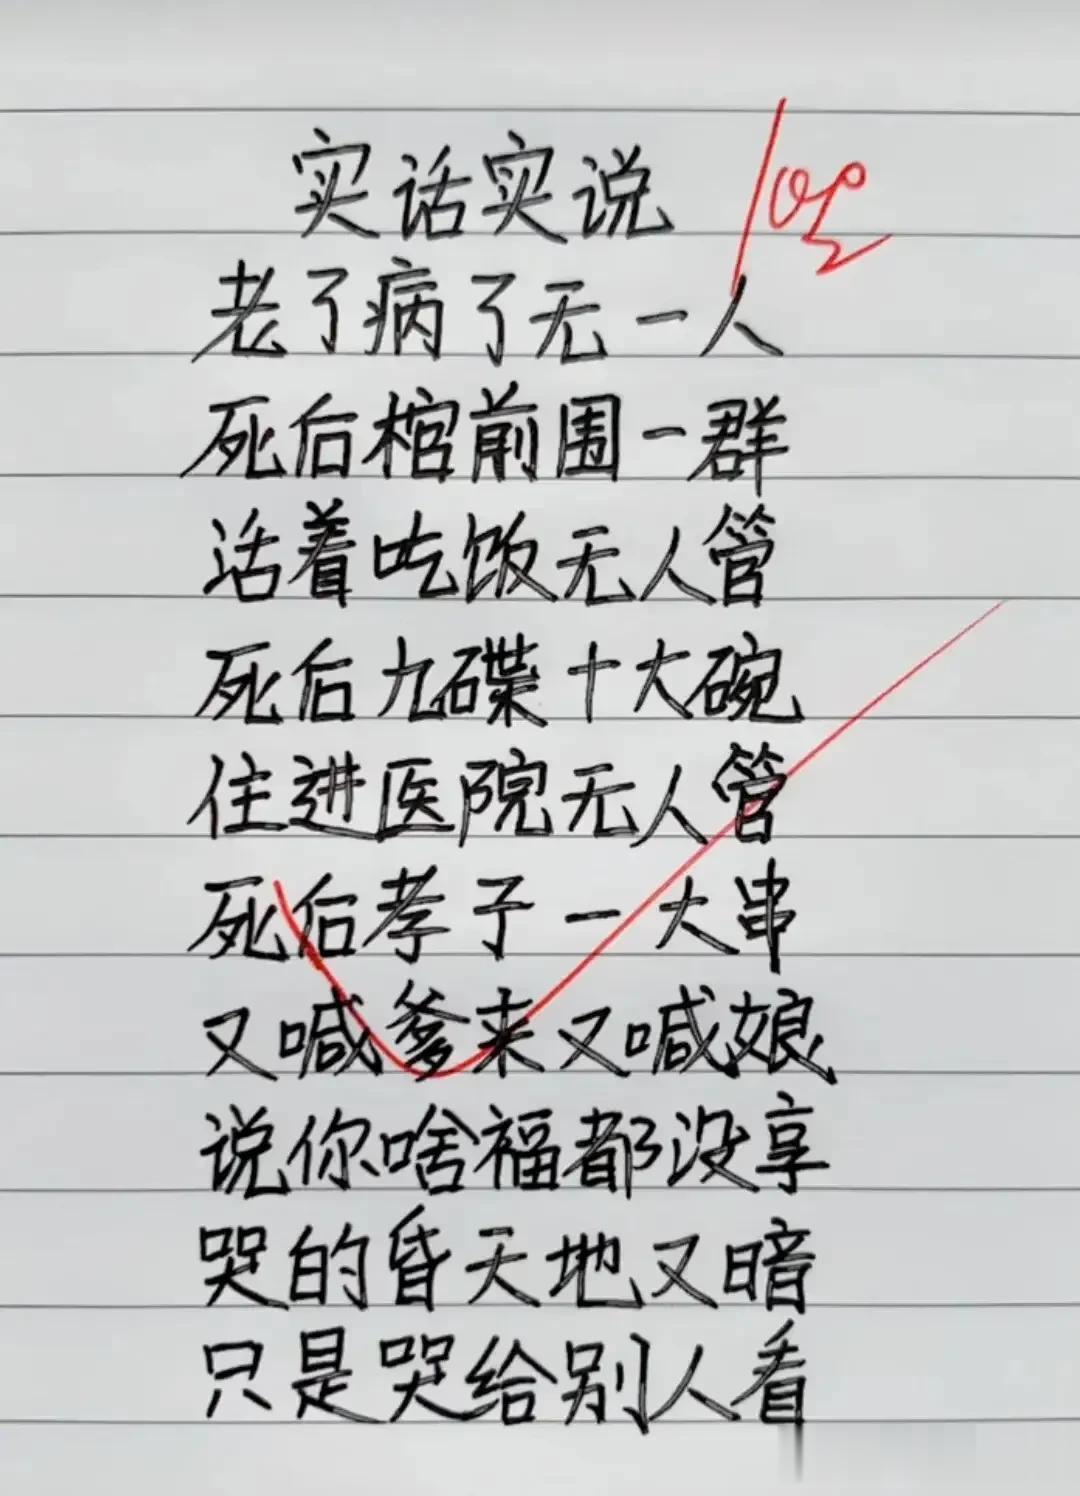 实话实说
老了病了无一人
死后棺前围一群
活着吃饭无人管
死后九碟十大碗
住进医院无人管
死后孝子一大串
又喊爹来又喊娘
说你啥福都没享
哭的昏天地又暗
只是哭给别人看